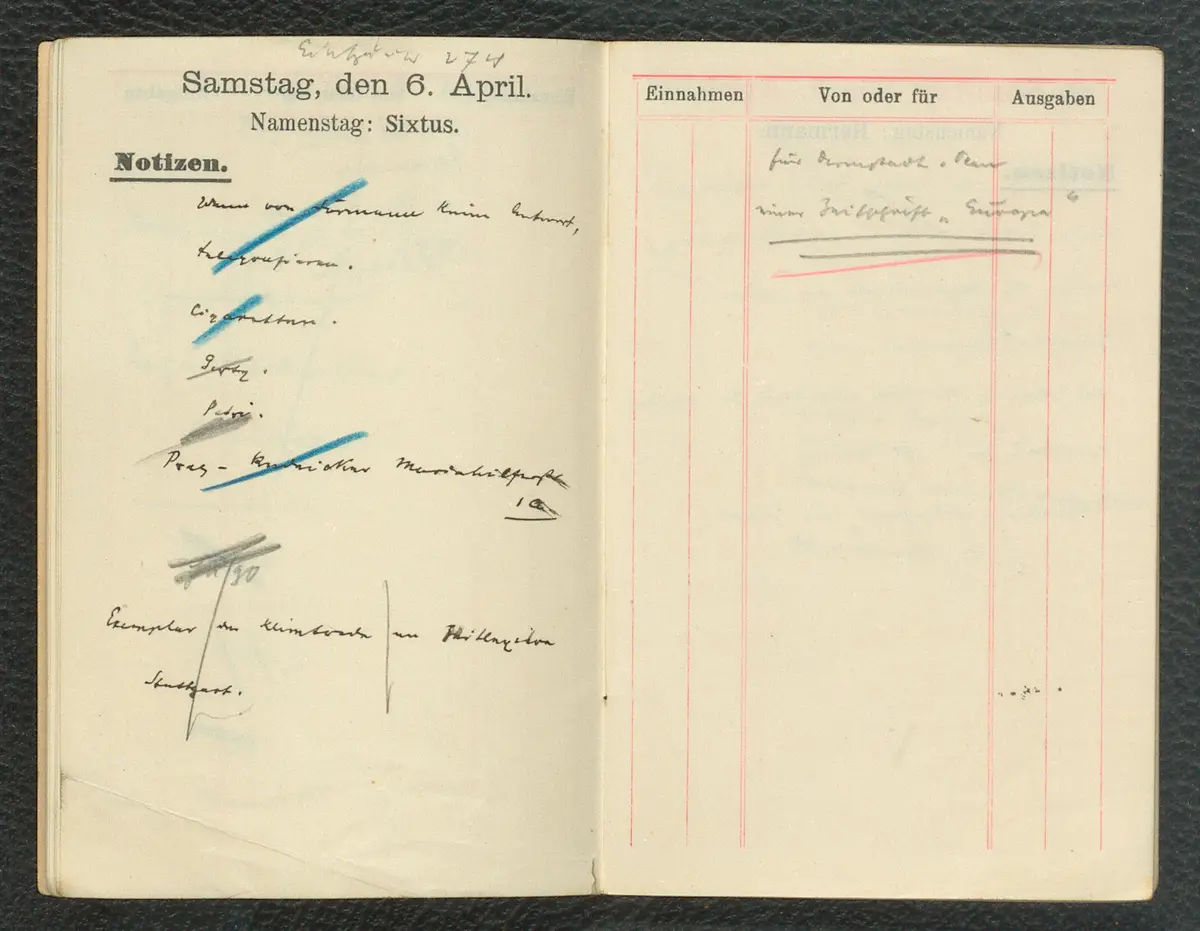 274
Samstag, den 6. April.
Namenstag: Sixtus.
Notizen.
Wenn von keine Antwort,
telegrafieren.
Cigaretten.
Petri.
Prag – Mariahilfstr
Exemplar der Klimtrede an
Stuttgart.
Einnahmen
Von oder für
Ausgaben
für Darmstadt. Plan
einer Zeitschrift „Europa“